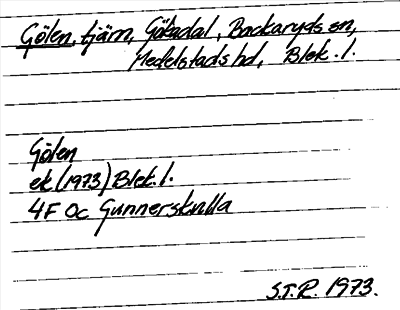 Gölen, tjärn, Götadal, Backaryds sn,
Medelstads hd, Blek. l.
Gölen
ek (1973) Blek. l.
4F 0c Gunnerskulla
S.T.R. 1973.